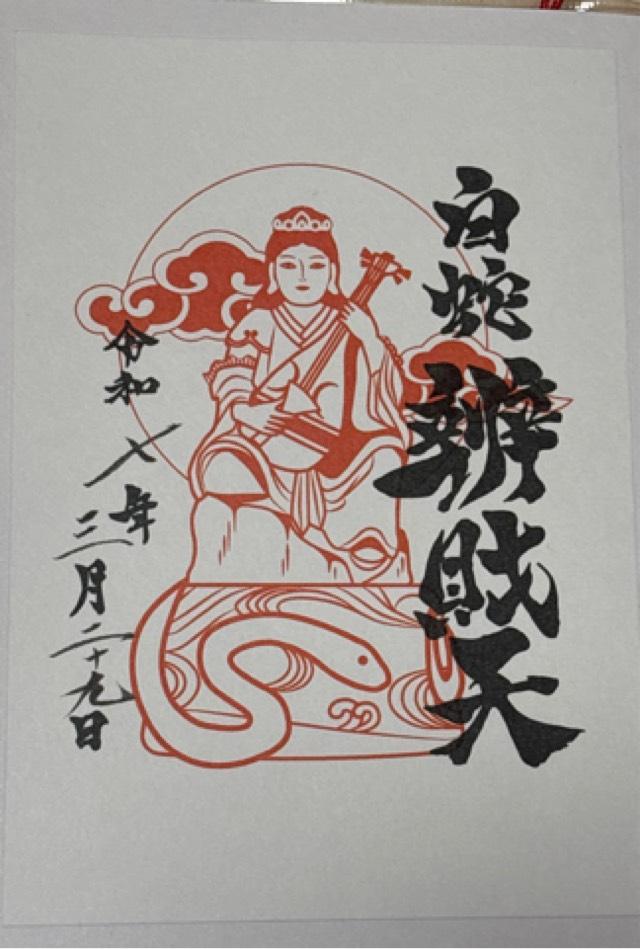 白蛇辨財天
令和七年三月二十九日